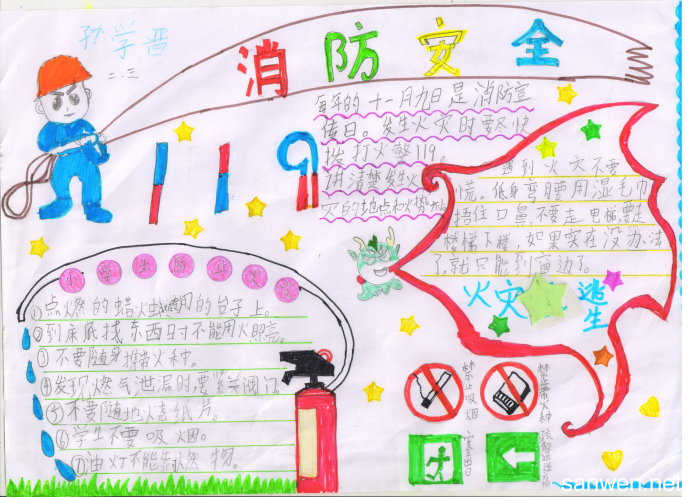 孙学晋
二.三
消防安全
119
每年的十一月九日是消防宣
传日。发生火灾时要尽快
拨打火警119。
讲清楚发生火
灾的地点和火势
遇到火灾不要
慌。低身弯腰用湿毛巾
捂住口鼻不要走电梯要走
楼梯下楼,如果实在没办法
了,就只能到窗边了。
火灾
逃生
小学生防火
①点燃的蜡火 用的台子上。
②到床底找东西时不能用火照亮。
③不要随身携带火种。
④发现燃气泄漏时要紧关阀门
⑤不要随地烧纸片。
⑥学生不要吸烟。
⑦油灯不能 燃物。
禁止吸烟
禁带火种
安全出口
sanwen.net